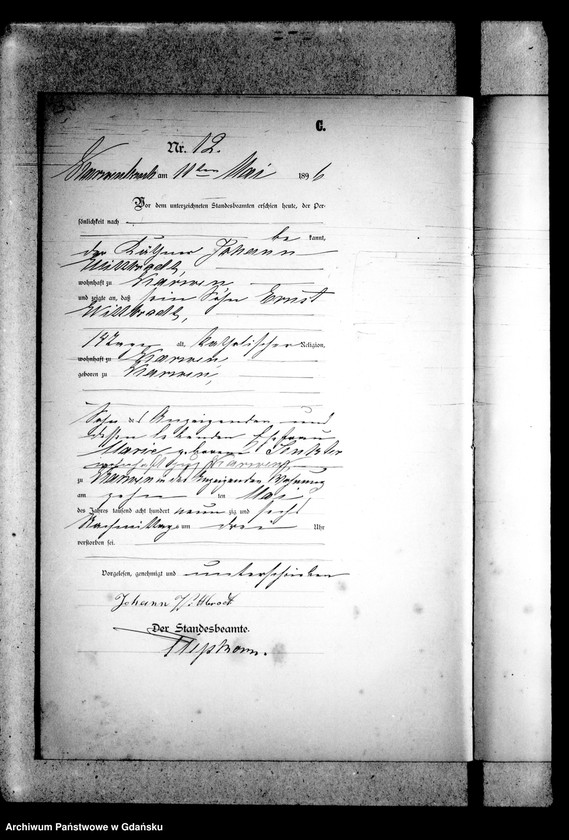 C.
Nr. 12.
am 11ten Mai 1896
Vor dem unterzeichneten Standesbeamten erschien heute, der Per-
sönlichkeit nach
be kannt,
der Käthner Johann
Wittbrodt,
wohnhaft zu Karwen,
und zeigte an, daß sein Sohn Ernst
Wittbrodt,
alt, katholischer Religion,
wohnhaft zu Karwen
geboren zu Karwen,
Sohn des Anzeigenden und
dessen lebenden Ehefrau
Marie geborenen
wohnhaft zu Karwen,
zu Karwen in des Anzeigenden Wohnung
am zehn ten Mai
des Jahres tausend acht hundert neun zig und sechs
Nachmittags um drei Uhr
verstorben sei.
Vorgelesen, genehmigt und unterschrieben
Johann Wittbrodt
Der Standesbeamte.
Archiwum Państwowe w Gdańsku